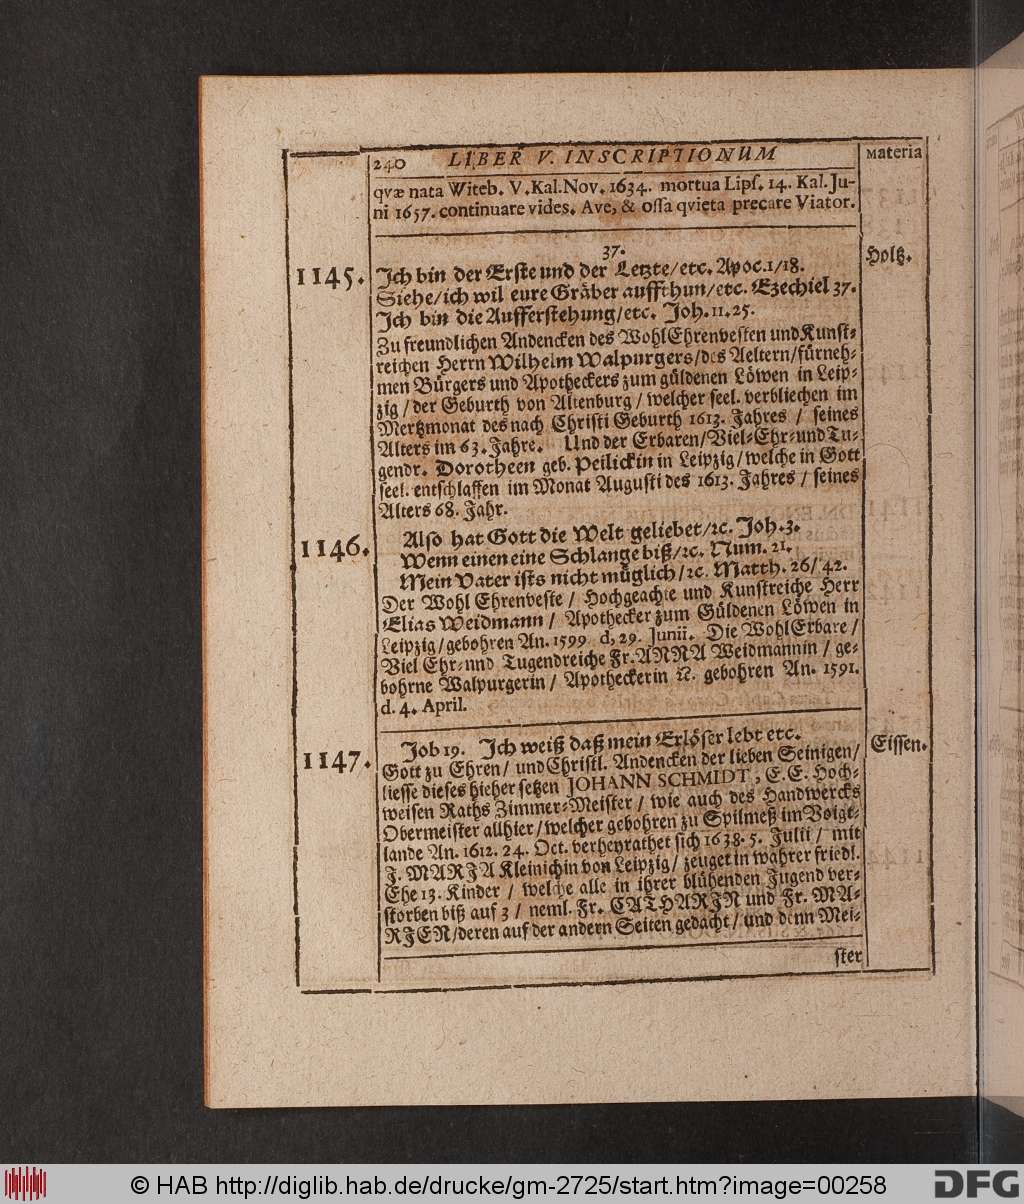 240 LIBER V. INSCRIPTIONUM Materia
qvæ nata Witeb. V. Kal. Nov. 1634. mortua Lipſ. 14. Kal. Ju-
ni 1657. continuare vides. Ave, & oſſa qvieta precare Viator.
37.
1145. Ich bin der Erſte und der Letzte/etc. Apoc. 1/18. Holtz.
Siehe/ich wil eure Gräber auffthun/etc. Ezechiel 37.
Ich bin die Aufferſtehung/etc. Joh. 11. 25.
Zu freundlichen Andencken des WohlEhrenveſten und Kunſt-
reichen Herrn Wilhelm Walpurgers/des Aeltern/fürneh-
men Bürgers und Apotheckers zum güldenen Löwen in Leip-
zig/der Geburth von Altenburg/welcher ſeel. verbliechen im
Mertzmonat des nach Chriſti Geburth 1613. Jahres/ ſeines
Alters im 63. Jahre. Und der Erbaren/Viel-Ehr-und Tu-
gendr. Dorotheen geb. Peilickin in Leipzig/welche in Gott
ſeel. entſchlaffen im Monat Auguſti des 1613. Jahres/ ſeines
Alters 68. Jahr.
1146. Alſo hat Gott die Welt geliebet/ꝛc. Joh. 3.
Wenn einen eine Schlange biß/ꝛc. Num. 21.
Mein Vater iſts nicht müglich/ꝛc. Matth. 26/42.
Der Wohl Ehrenveſte/ Hochgeachte und Kunſtreiche Herr
Elias Weidmann/ Apothecker zum Güldenen Löwen in
Leipzig/gebohren An. 1599 d, 29. Junii. Die WohlErbare/
Viel Ehr-nnd Tugendreiche Fr. ANNA Weidmannin/ ge-
bohrne Walpurgerin/ Apotheckerin ꝛc. gebohren An. 1591.
d. 4. April.
1147. Job 19. Ich weiß daß mein Erlöſer lebt etc. Eiſſen.
Gott zu Ehren/ und Chriſtl. Andencken der lieben Seinigen/
lieſſe dieſes hieher ſetzen JOHANN SCHMIDT, E. E. Hoch-
weiſen Raths Zimmer-Meiſter/ wie auch des Handwercks
Obermeiſter allhier/welcher gebohren zu Spilmeß im Voigt-
lande An. 1612. 24. Oct. verheyrathet ſich 1638. 5. Julii/ mit
J. MARJA Kleinichin von Leipzig/ zeuget in wahrer friedl.
Ehe 13. Kinder/ welche alle in ihrer blühenden Jugend ver-
ſtorben biß auf 3/ neml. Fr. CATHARJN und Fr. MA-
RJEN/deren auf der andern Seiten gedacht/ und denn Mei-
ſter
© HAB http://diglib.hab.de/drucke/gm-2725/start.htm?image=00258
DFG